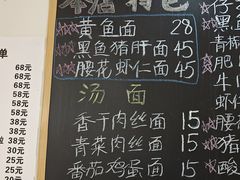 本店特色
黄鱼面 28
黑鱼猪肝面 45
腰花虾仁面 45
汤面
香干肉丝面 15
青菜肉丝面 15
番茄鸡蛋面 15
单
68元
68元
58元
58元
58元
38元
38元
30元
25元
25元
20元
仔
青
肥
猪
酸